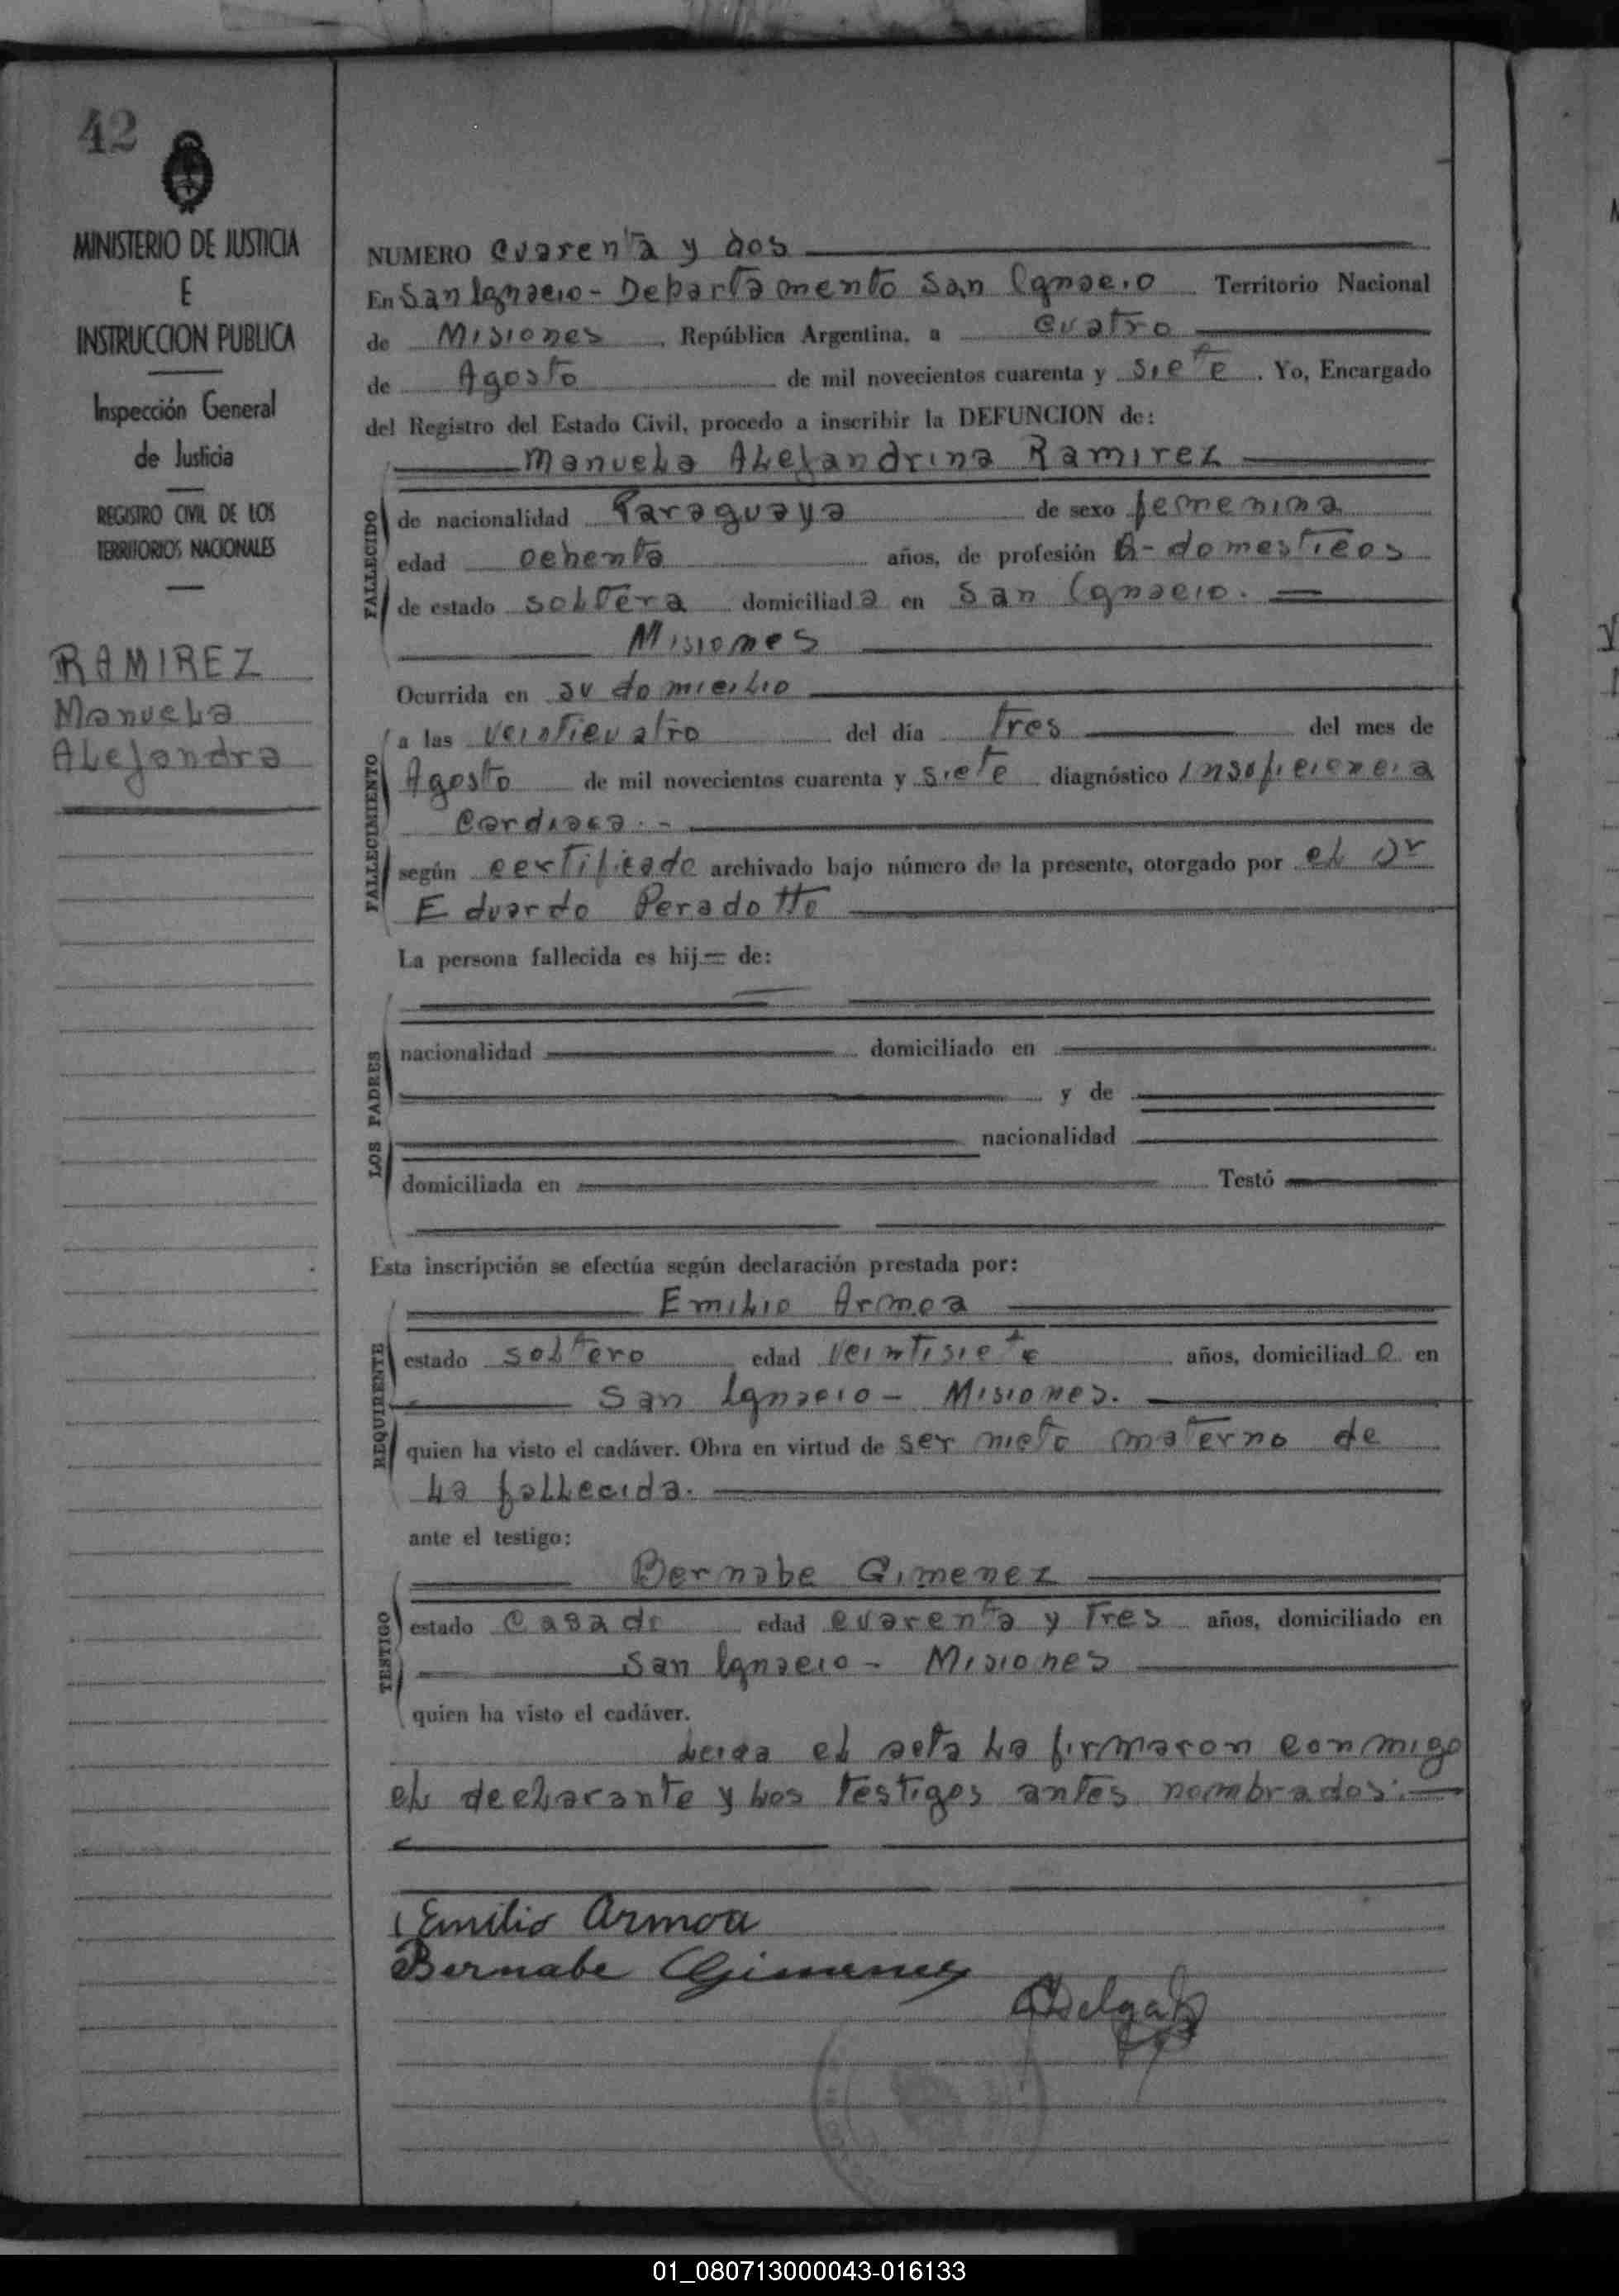 42
MINISTERIO DE JUSTICIA
E
INSTRUCCION PUBLICA
Inspección General
de Justicia
REGISTRO CIVIL DE LOS
TERRITORIOS NACIONALES
RAMIREZ
Manuela
Alejandra
NUMERO cuarenta y dos
En San Ignacio - Departamento San Ignacio Territorio Nacional
de Misiones, República Argentina, a cuatro
de Agosto de mil novecientos cuarenta y siete. Yo, Encargado
del Registro del Estado Civil, procedo a inscribir la DEFUNCION de:
Manuela Alejandrina Ramirez
FALLECIDO
de nacionalidad Paraguaya de sexo femenina
edad ochenta años, de profesión Q- domesticos
de estado soltera domiciliada en San Ignacio.
Misiones
Ocurrida en su domicilio
FALLECIMIENTO
a las veinticuatro del día tres del mes de
Agosto de mil novecientos cuarenta y siete diagnóstico insuficiencia
cardiaca. -
según certificado archivado bajo número de la presente, otorgado por el Dr
Eduardo Peradotto
La persona fallecida es hij= de:
LOS PADRES
nacionalidad domiciliado en
y de
nacionalidad
domiciliada en Testó
Esta inscripción se efectúa según declaración prestada por:
Emilio Armoa
REQUIRENTE
estado soltero edad veintisiete años, domiciliado en
San Ignacio - Misiones.
quien ha visto el cadáver. Obra en virtud de ser nieto materno de
la fallecida.
ante el testigo:
Bernabe Gimenez
TESTIGO
estado casado edad cuarenta y tres años, domiciliado en
San Ignacio - Misiones
quien ha visto el cadáver.
Leida el acta la firmaron conmigo
el declarante y los testigos antes nombrados.
Emilio Armoa
Bernabe Gimenez
01_080713000043-016133